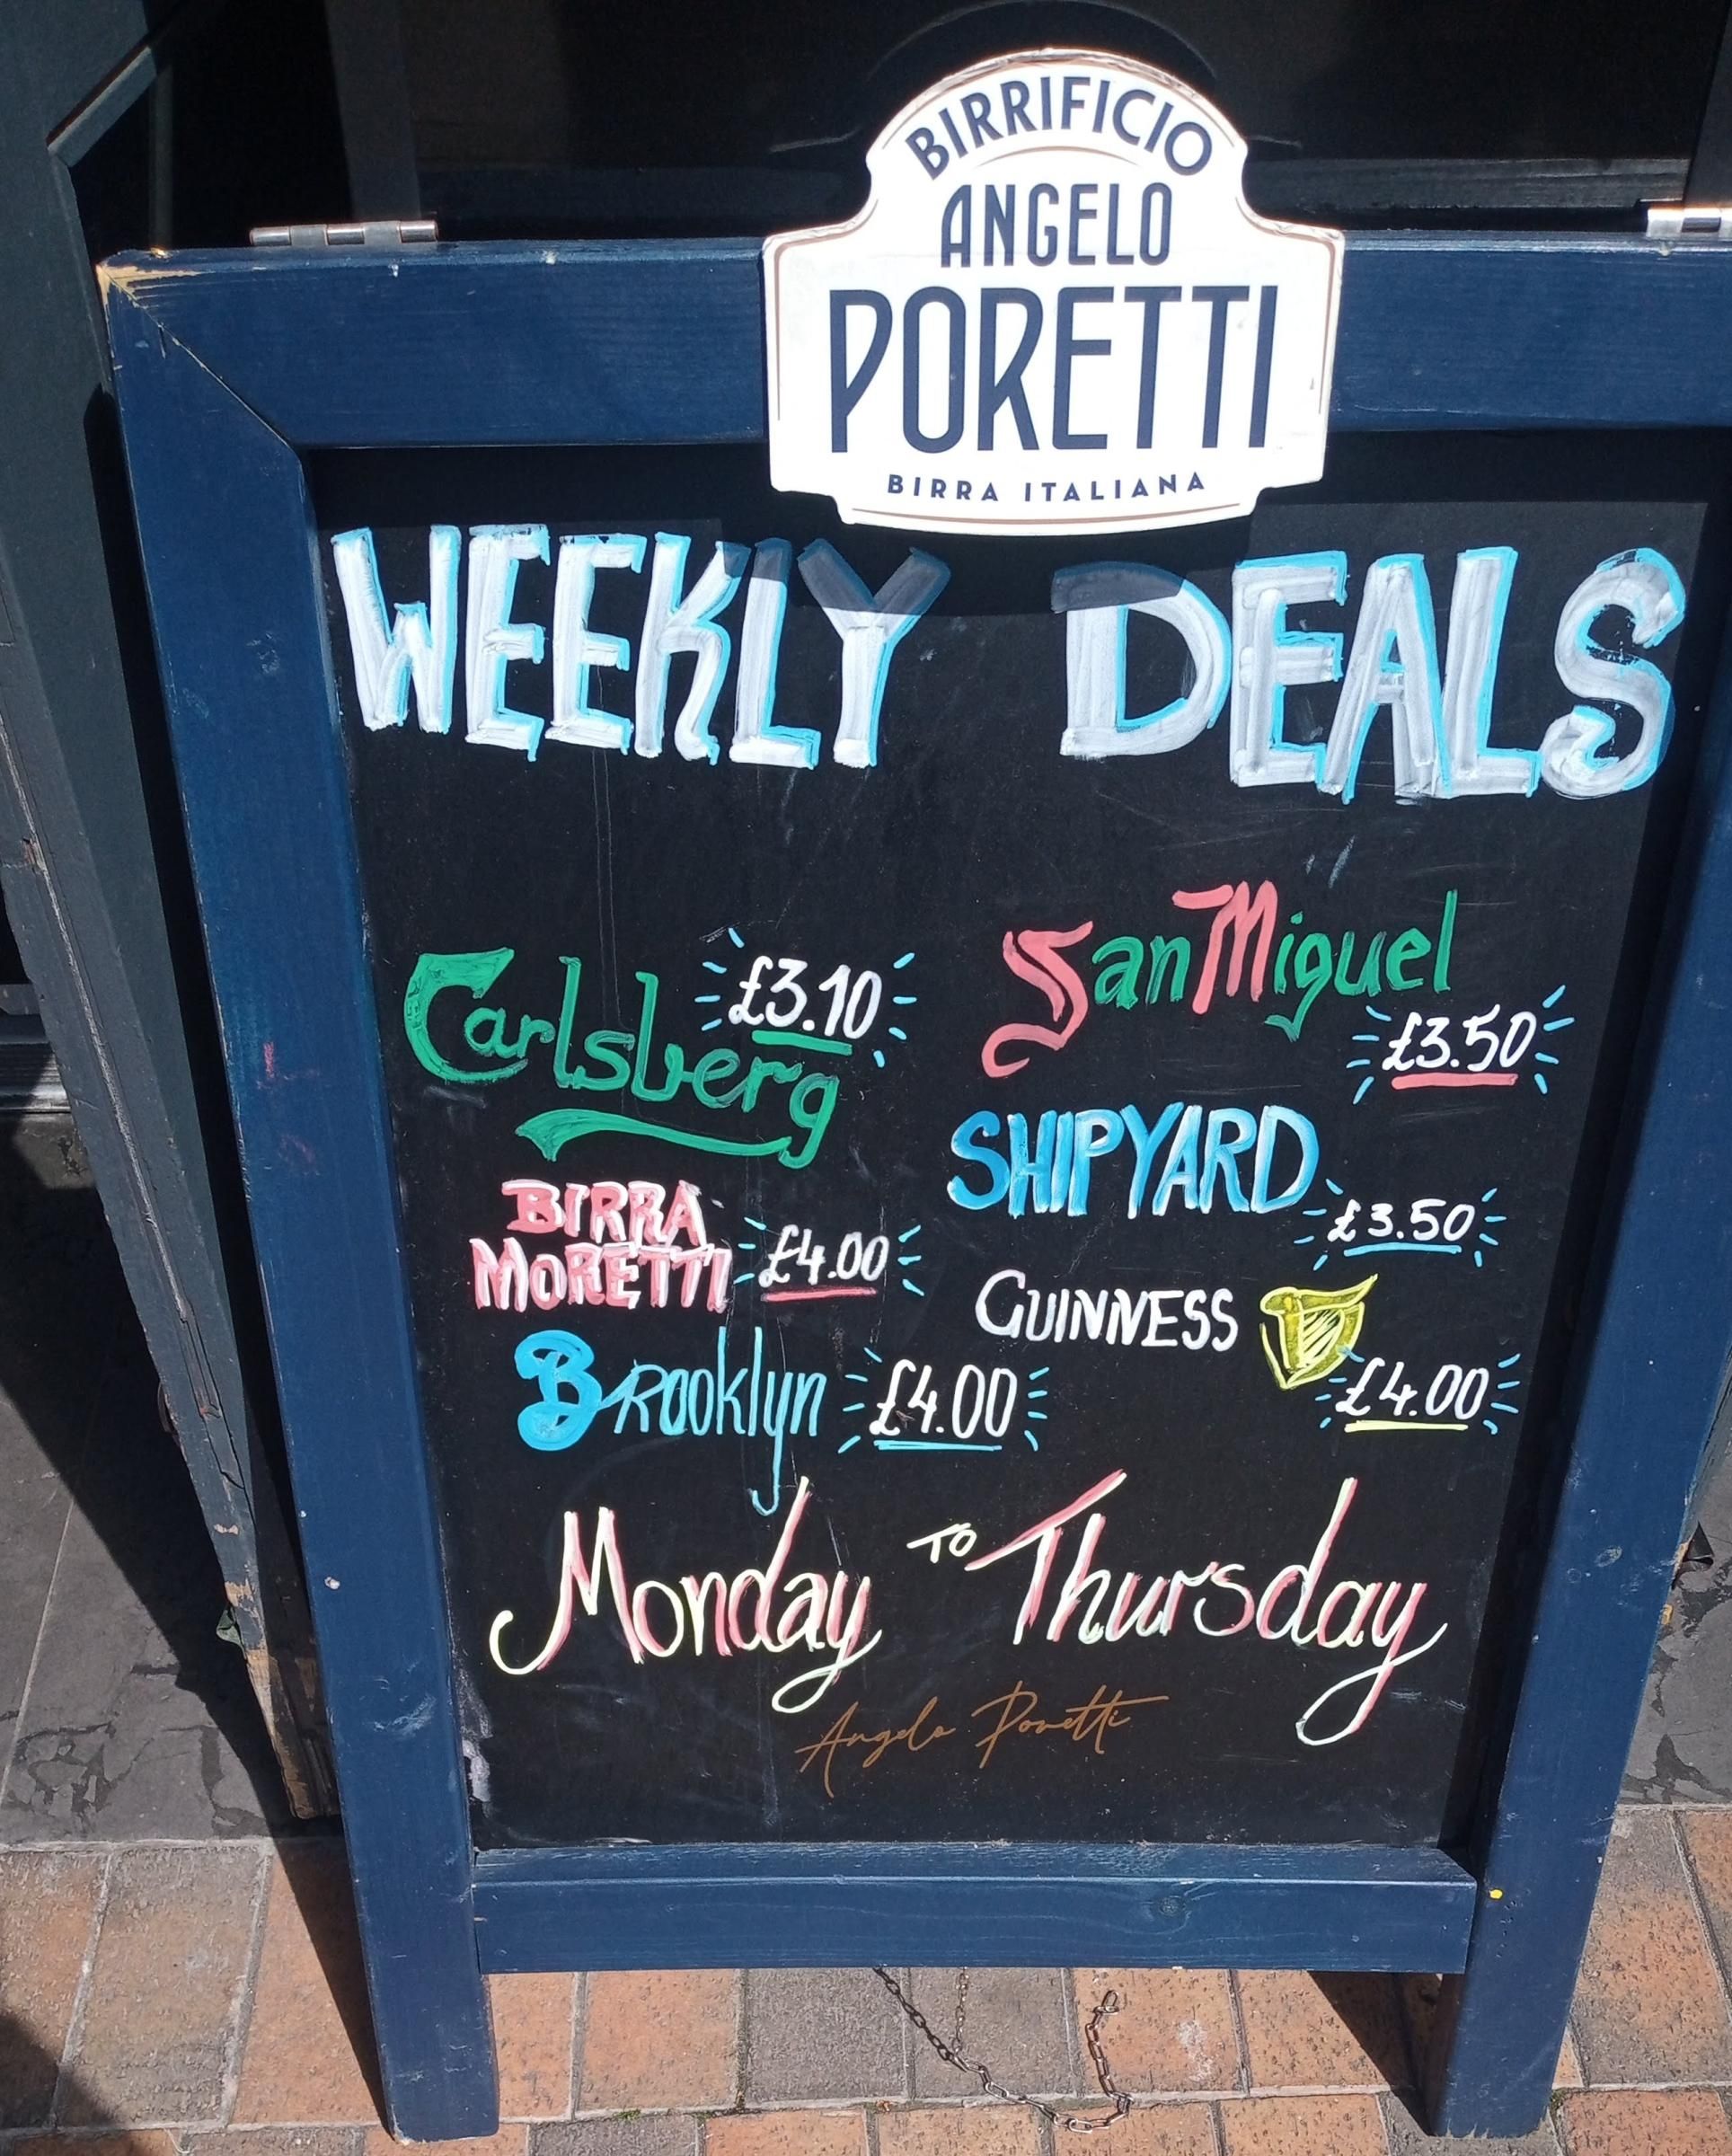 BIRRIFICIO
ANGELO
PORETTI
BIRRA ITALIANA
WEEKLY DEALS
Carlsberg £3.10
San Miguel £3.50
BIRRA
MORETTI £4.00
SHIPYARD £3.50
Brooklyn £4.00
GUINNESS £4.00
Monday TO Thursday
Angelo Poretti